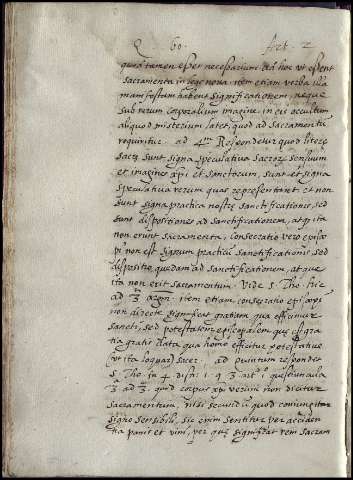 Q 60. Art. 2
quia tamen esset necessarium ad hoc ut essent
sacramenta in lege nova. item etiam verba illa
manifestam habent significationem, neque
sub rerum corporalium imagine in eis occultum
aliquod misterium latet, quod ad sacramentum
requiritur. ad 4m Respondetur quod literæ
sacræ sunt signa speculativa sacrorum sensuum
et imagines xpi et sanctorum, sunt et signa
speculativa rerum quas representant et non
sunt signa practica nostræ sanctificationis, sed
sunt dispositiones ad sanctificationem, atq ita
non erunt sacramenta. consecratio vero episco
pi non est signum practicum sanctificationis sed
dispositio quedam ad sanctificationem, atque
ita non erit sacramentum. Vide S. Tho. hic
ad 3m argm. item etiam consecratio episcopi
non directe significat gratiam qua efficimur
sancti, sed potestatem episcopalem quæ est gra
tia gratis data qua homo efficitur potestativus
(ut ita loquar) sacer. ad quintum respondet
S. Tho. in 4 dist. 1 q. 3 arti. 1 quæstiuncula
3a ad 3m. quod corpus xpi verum non dicitur
sacramentum, nisi secundum quod coniungitur
signo sensibili, sic enim sentitur per acciden
tia panis et vini, per quæ significat rem sacram